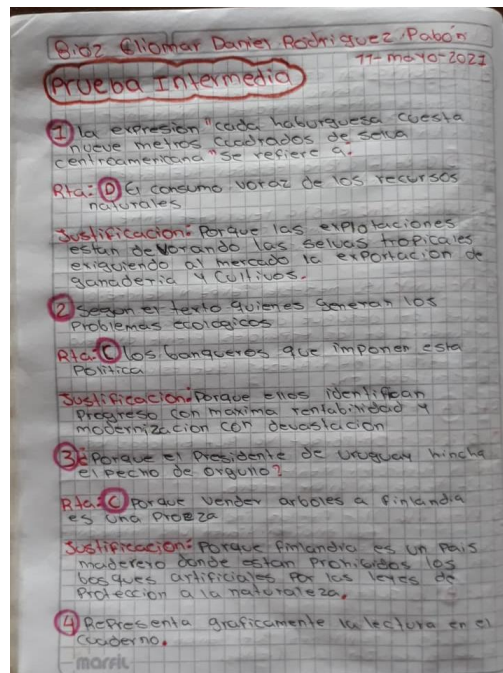 8:02 Cliomar Daniel Rodriguez Pabón
11-mayo-2021
Prueba Intermedia
1 la expresion "cada haburguesa cuesta
nueve metros cuadrados de selva
centroamericana" se refiere a:
Rta: D El consumo voraz de los recursos
naturales
Justificacion: Porque las explotaciones
estan devorando las selvas tropicales
exiguiendo al mercado la exportacion de
ganaderia y cultivos.
2 Segun el texto quienes generan los
problemas ecologicos
Rta: C los banqueros que imponen esta
Politica
Justificacion: Porque ellos identifican
Progreso con maxima rentabilidad y
modernizacion con devastacion
3 ¿Porque el Presidente de uruguay hincha
el pecho de orgullo?
Rta: C Porque vender arboles a finlandia
es una Proeza
Justificacion: Porque finlandia es un pais
maderero donde estan Prohibidos los
bosques artificiales Por las leyes de
Proteccion a la naturaleza.
4 Representa graficamente la lectura en el
cuaderno.
marfil